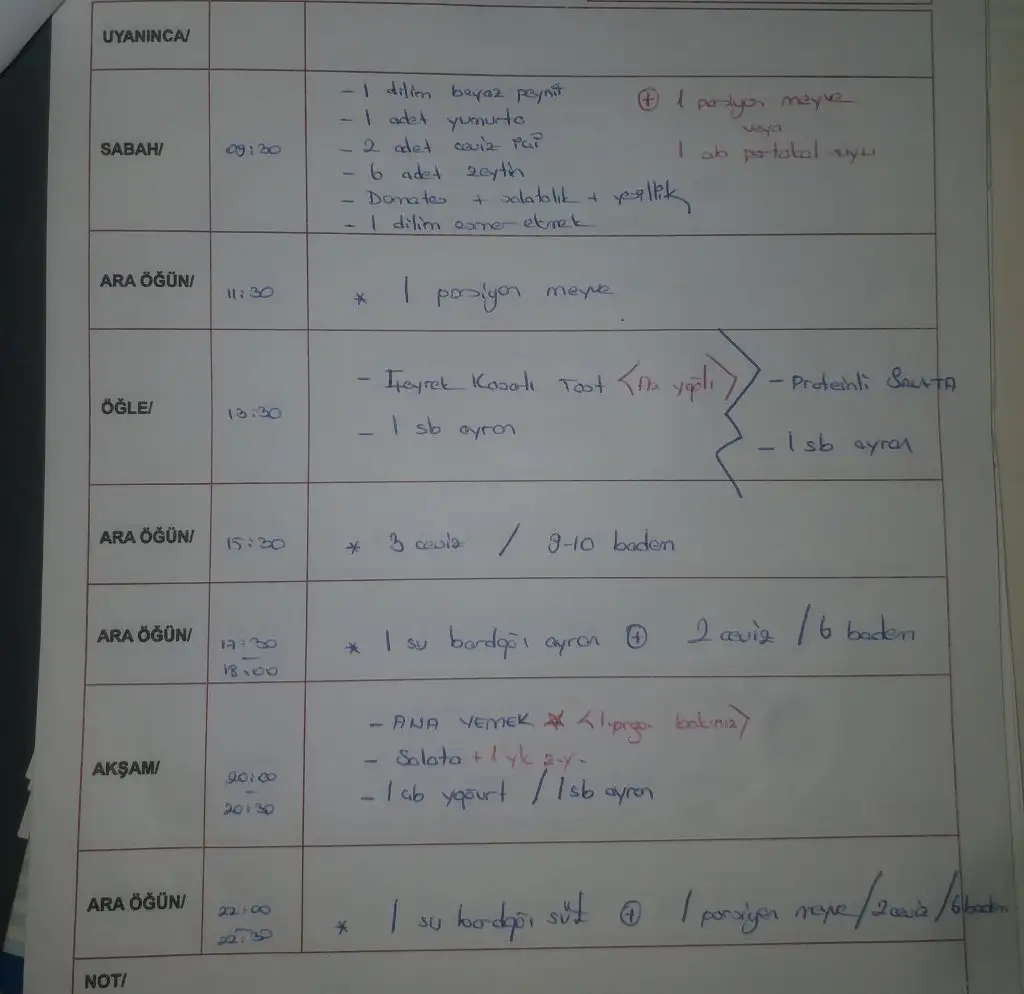 UYANINCA/
SABAH/
09:30
- 1 dilim beyaz peynir
- 1 adet yumurta
- 2 adet ceviz içi
- 6 adet zeytin
- Domates + salatalık + yeşillik
- 1 dilim esmer ekmek
+ 1 porsiyon meyve
veya
1 ab portakal suyu
ARA ÖĞÜN/
11:30
* 1 porsiyon meyve
ÖĞLE/
13:30
- Çeyrek Kaşarlı Tost <Az yağlı>
- 1 sb ayran
- Proteinli SALATA
- 1 sb ayran
ARA ÖĞÜN/
15:30
* 3 ceviz / 9-10 badem
ARA ÖĞÜN/
17:30
-
18:00
* 1 su bardağı ayran + 2 ceviz / 6 badem
AKŞAM/
20:00
-
20:30
- ANA YEMEK * < bakınız>
- Salata + 1 yk z.y.
- 1 ab yoğurt / 1 sb ayran
ARA ÖĞÜN/
22:00
-
22:30
* 1 su bardağı süt + 1 porsiyon meyve / 2 ceviz / 6 badem
NOT/